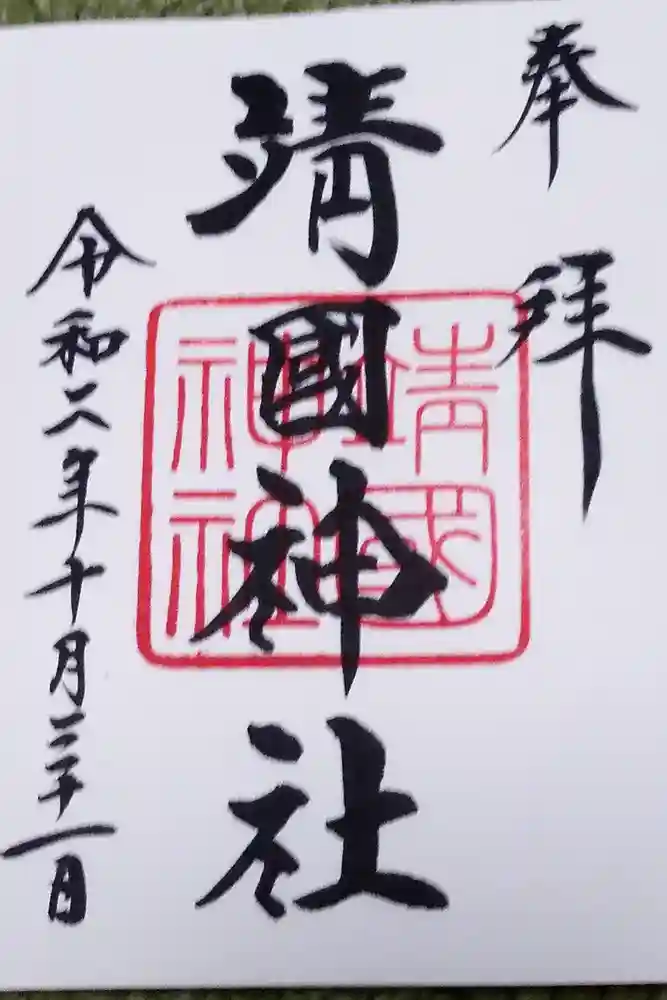 奉拝
靖國神社
靖國神社
令和二年十月三十一日